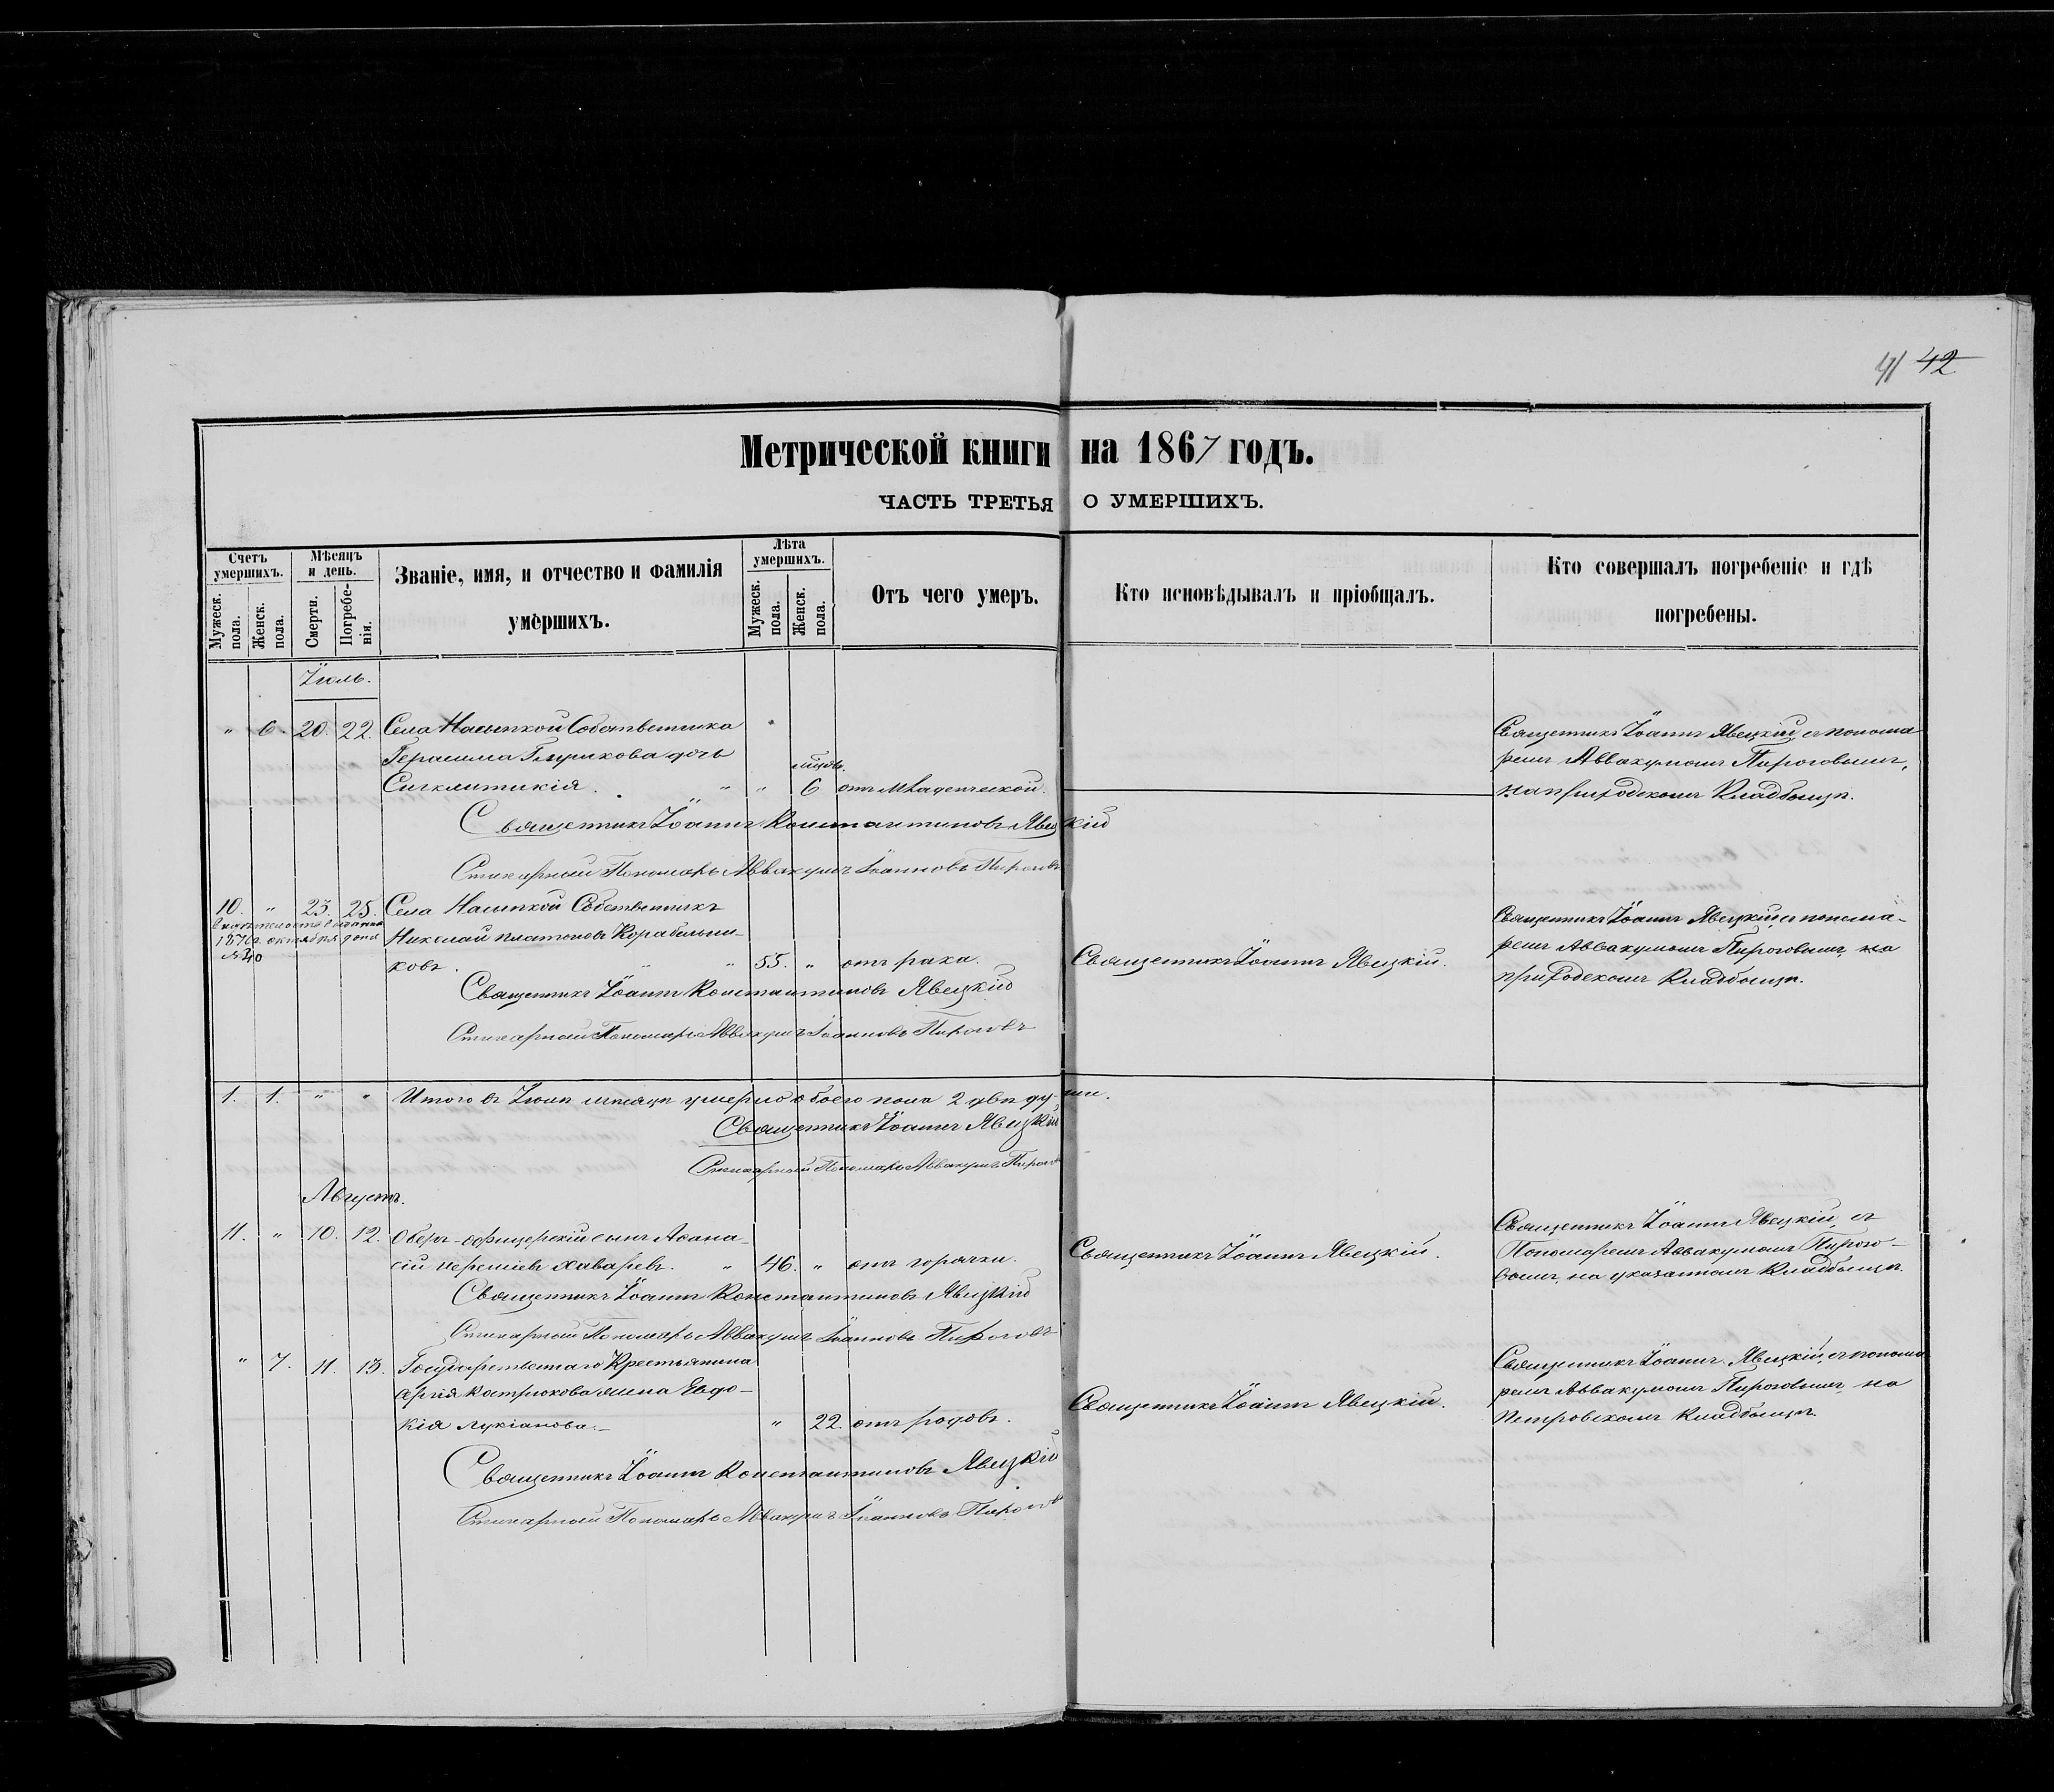 41 42
Метрической книги на 1867 годъ.
ЧАСТЬ ТРЕТЬЯ О УМЕРШИХЪ.
Счетъ умершихъ.
Мужеск. пола.
Женск. пола.
Мѣсяцъ и день.
Смерти.
Погребенія.
Званіе, имя, и отчество и фамилія
умершихъ.
Лѣта умершихъ.
Мужеск. пола.
Женск. пола.
Отъ чего умеръ.
Кто исповѣдывалъ и пріобщалъ.
Кто совершалъ погребеніе и гдѣ
погребены.
Іюль.
" 6. 20. 22. Села Насыпкой Собственника
Герасима дочь мцовъ.
Сигклитикія. " " 6 отъ младенческой.
Священникъ Іоаннъ Явецкій съ понома
ремъ Аввакумомъ Пироговымъ,
на приходскомъ Кладбищѣ.
Священникъ Іоаннъ Константиновъ Явецкій
Стихарный Пономарь Аввакумъ Іоанновъ Пироговъ
10. " 23. 25. Села Насыпкой Собственникъ
1876 г. октября дня
№ 40
Николай Платоновъ Корабельни-
ковъ. " " 55. " отъ рака.
Священникъ Іоаннъ Явецкій.
Священникъ Іоаннъ Явецкій съ понома-
ремъ Аввакумомъ Пироговымъ, на
приходскомъ Кладбищѣ.
Священникъ Іоаннъ Константиновъ Явецкій
Стихарный Пономарь Аввакумъ Іоанновъ Пироговъ
1. 1. " " Итого въ Іюлѣ мѣсяцѣ умерло обоего пола 2 двѣ души.
Священникъ Іоаннъ Явецкій
Стихарный Пономарь Аввакумъ Пироговъ
Августъ.
11. " 10. 12. Оберъ-офицерскій сынъ Аѳана-
сій " 46. " отъ горячки.
Священникъ Іоаннъ Явецкій.
Священникъ Іоаннъ Явецкій, съ
Пономаремъ Аввакумомъ Пирого-
вымъ, на указанномъ Кладбищѣ.
Священникъ Іоаннъ Константиновъ Явецкій
Стихарный Пономарь Аввакумъ Іоанновъ Пироговъ
" 7. 11. 13. Государственнаго Крестьянина
Кострюкова жена Евдо-
кія Лукіанова.- " 22. отъ родовъ.
Священникъ Іоаннъ Явецкій.
Священникъ Іоаннъ Явецкій, съ понома
ремъ Аввакумомъ Пироговымъ на
Петровскомъ Кладбищѣ.
Священникъ Іоаннъ Константиновъ Явецкій
Стихарный Пономарь Аввакумъ Іоанновъ Пироговъ